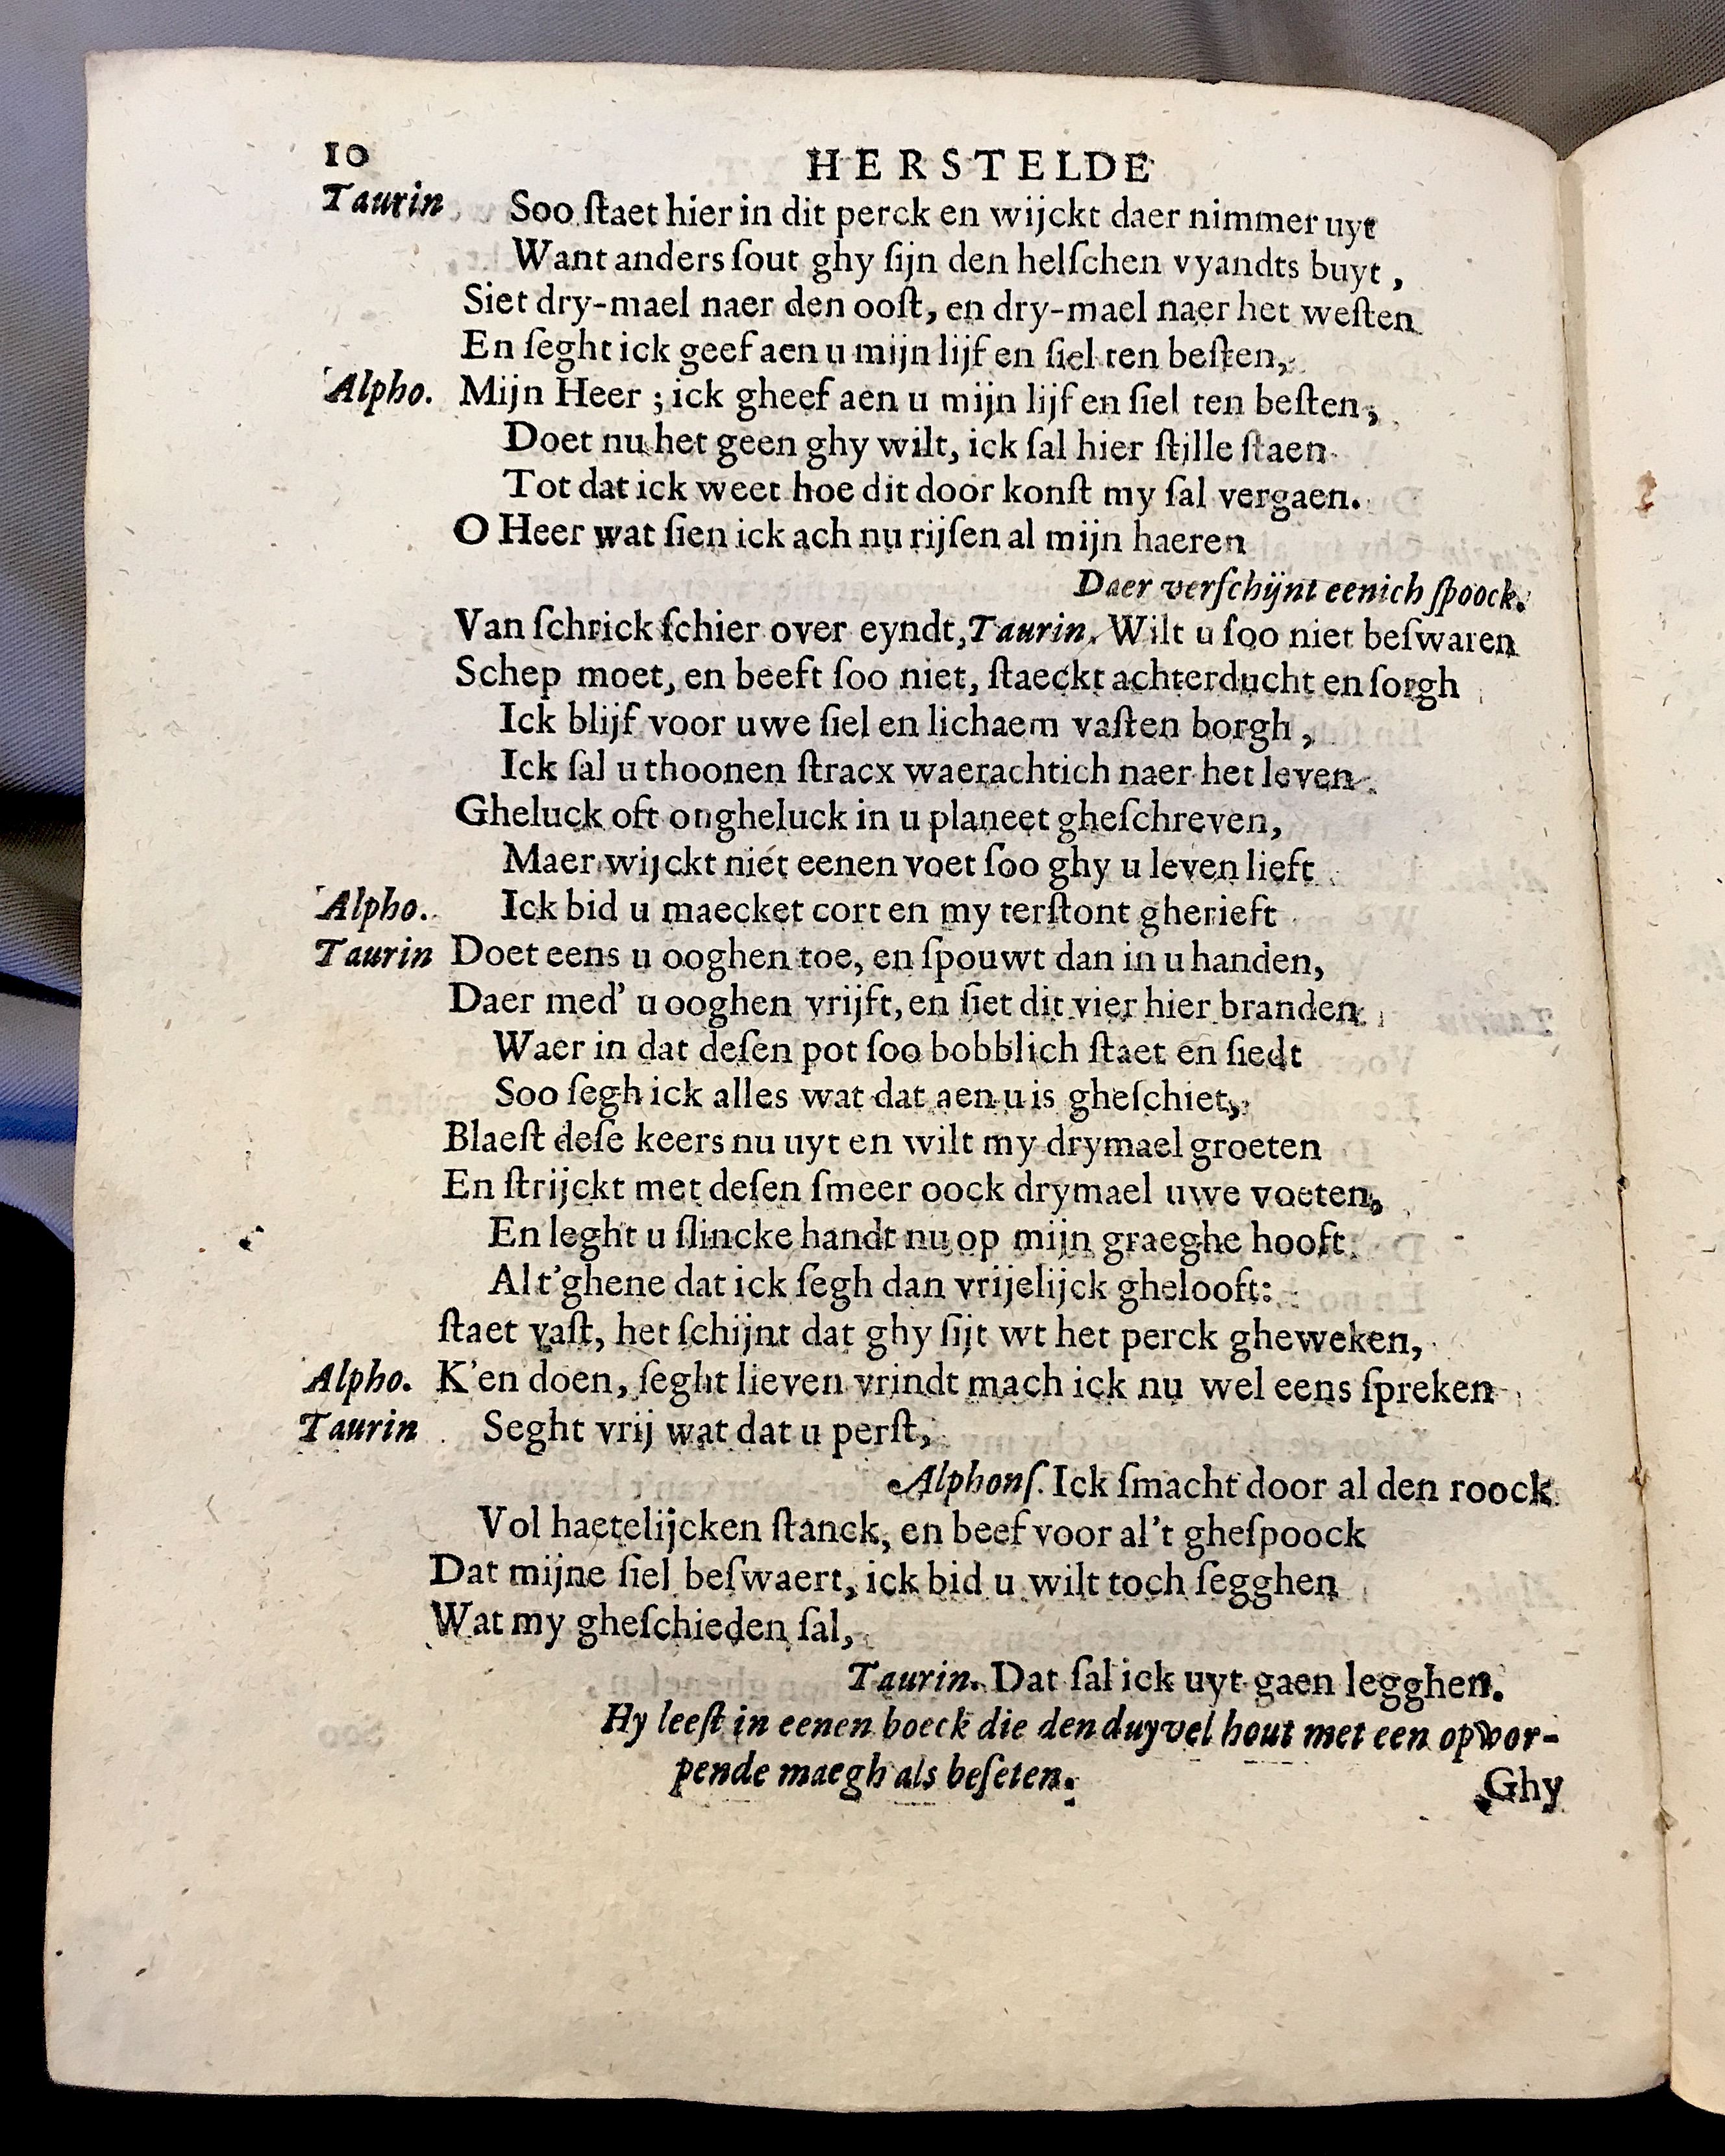 10 HERSTELDE
Taurin Soo ſtaet hier in dit perck en wijckt daer nimmer uyt
Want anders ſout ghy ſijn den helſchen vyandts buyt,
Siet dry-mael naer den ooſt, en dry-mael naer het weſten
En ſeght ick geef aen u mijn lijf en ſiel ten beſten,
Alpho. Mijn Heer ; ick gheef aen u mijn lijf en ſiel ten beſten;
Doet nu het geen ghy wilt, ick ſal hier ſtille ſtaen
Tot dat ick weet hoe dit door konſt my ſal vergaen.
O Heer wat ſien ick ach nu rijſen al mijn haeren
Daer verſchijnt eenich ſpoock.
Van ſchrick ſchier over eyndt, Taurin. Wilt u ſoo niet beſwaren
Schep moet, en beeft ſoo niet, ſtaeckt achterducht en ſorgh
Ick blijf voor uwe ſiel en lichaem vaſten borgh,
Ick ſal u thoonen ſtracx waerachtich naer het leven
Gheluck oft ongheluck in u planeet gheſchreven,
Maer wijckt niet eenen voet ſoo ghy u leven lieft
Alpho. Ick bid u maecket cort en my terſtont gherieft
Taurin Doet eens u ooghen toe, en ſpouwt dan in u handen,
Daer med' u ooghen vrijft, en ſiet dit vier hier branden
Waer in dat deſen pot ſoo bobblich ſtaet en ſiedt
Soo ſegh ick alles wat dat aen u is gheſchiet,
Blaeſt deſe keers nu uyt en wilt my drymael groeten
En ſtrijckt met deſen ſmeer oock drymael uwe voeten,
En leght u ſlincke handt nu op mijn graeghe hooft
Al t'ghene dat ick ſegh dan vrijelijck ghelooft:
ſtaet vaſt, het ſchijnt dat ghy ſijt wt het perck gheweken,
Alpho. K'en doen, ſeght lieven vrindt mach ick nu wel eens ſpreken
Taurin Seght vrij wat dat u perſt,
Alphonſ. Ick ſmacht door al den roock
Vol haetelijcken ſtanck, en beef voor al't gheſpoock
Dat mijne ſiel beſwaert, ick bid u wilt toch ſegghen
Wat my gheſchieden ſal,
Taurin. Dat ſal ick uyt gaen legghen.
Hy leeſt in eenen boeck die den duyvel hout met een opwor-
pende maegh als beſeten.
Ghy